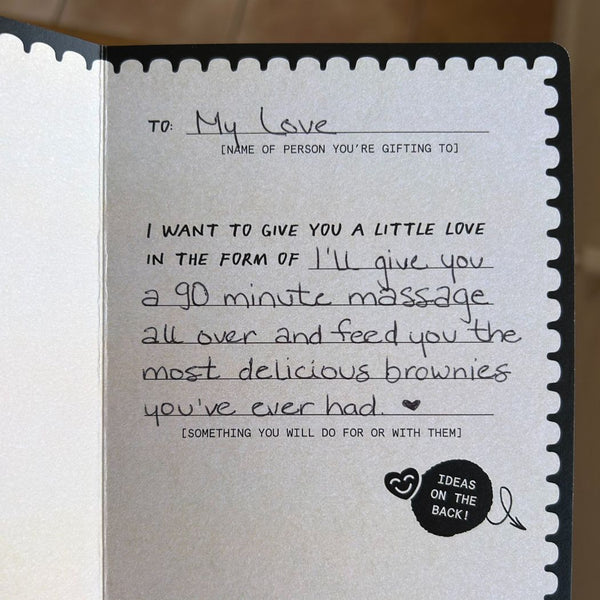 TO: My Love
[NAME OF PERSON YOU'RE GIFTING TO]
I WANT TO GIVE YOU A LITTLE LOVE
IN THE FORM OF I'll give you
a 90 minute massage
all over and feed you the
most delicious brownies
you've ever had. ♥
[SOMETHING YOU WILL DO FOR OR WITH THEM]
IDEAS
ON THE
BACK!